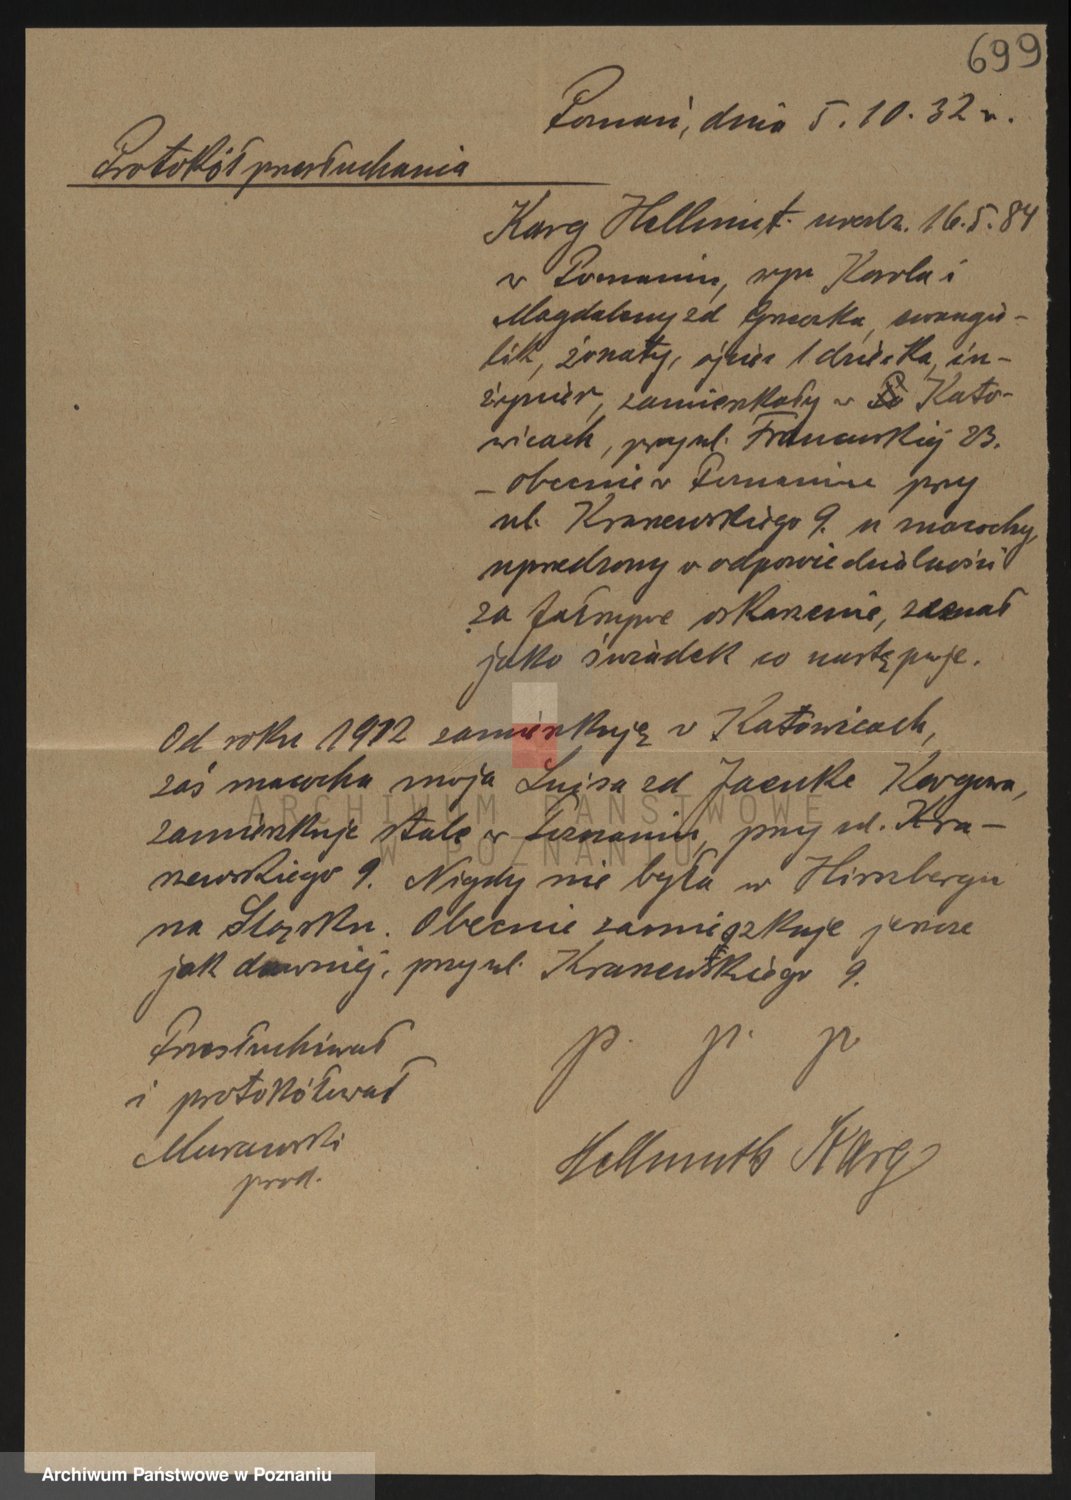 699
Poznań, dnia 5.10.32 r.
Protokół przesłuchania
Karg Hellmut. urodz. 16.5.84
w Poznaniu, syn Karola i
Magdaleny zd , ewangie-
lik, żonaty, ojciec 1 dziecka, in-
żynier, zamieszkały w Po Kato-
wicach, przy ul. Francuskiej 23.
– obecnie w Poznaniu przy
ul. Kraszewskiego 9. u macochy,
uprzedzony o odpowiedzialności
za fałszywe oskarżenie, zeznał
jako świadek co następuje.
Od roku 1912 zamieszkuję w Katowicach,
zaś macocha moja Lujsa zd Jaenke Kargowa,
zamieszkuje stale w Poznaniu, przy ul. Kra-
szewskiego 9. Nigdy nie była w Hirszbergu
na Śląsku. Obecnie zamieszkuje jeszcze
jak dawniej, przy ul. Kraszewskiego 9.
Przesłuchiwał
p. p. p
i protokółował
Murawski
Hellmuth Karg
przod.
ARCHIWUM PAŃSTWOWE
W POZNANIU
Archiwum Państwowe w Poznaniu